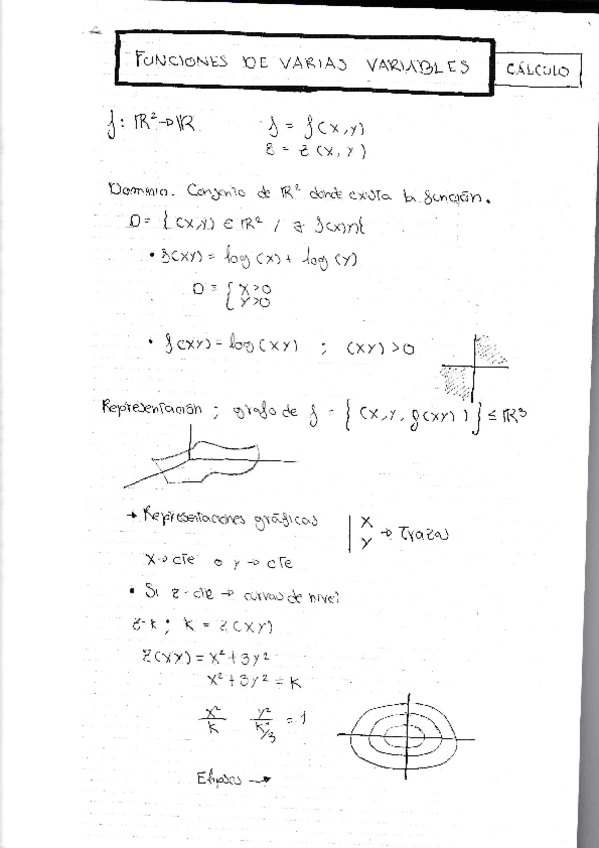 FUNCIONES DE VARIAS VARIABLES
CÁLCULO
f: ℝ²→ℝ f = f(x,y)
z = z(x,y)
Dominio. Conjunto de ℝ² donde exista la función.
D = {(x,y) ∈ ℝ² / ∃ f(x,y)}
• f(xy) = log(x) + log(y)
D = { x>0
y>0
• f(xy) = log(xy) ; (xy) > 0
Representación ; grafo de f = {(x, y, f(xy))} ≤ ℝ³
→ Representaciones gráficas | x
y → Trazas
x→cte o y→cte
• Si z=cte → curvas de nivel
z=k ; k = z(xy)
z(xy) = x² + 3y²
x² + 3y² = k
x²/k y²/k/3 = 1
Elipses →